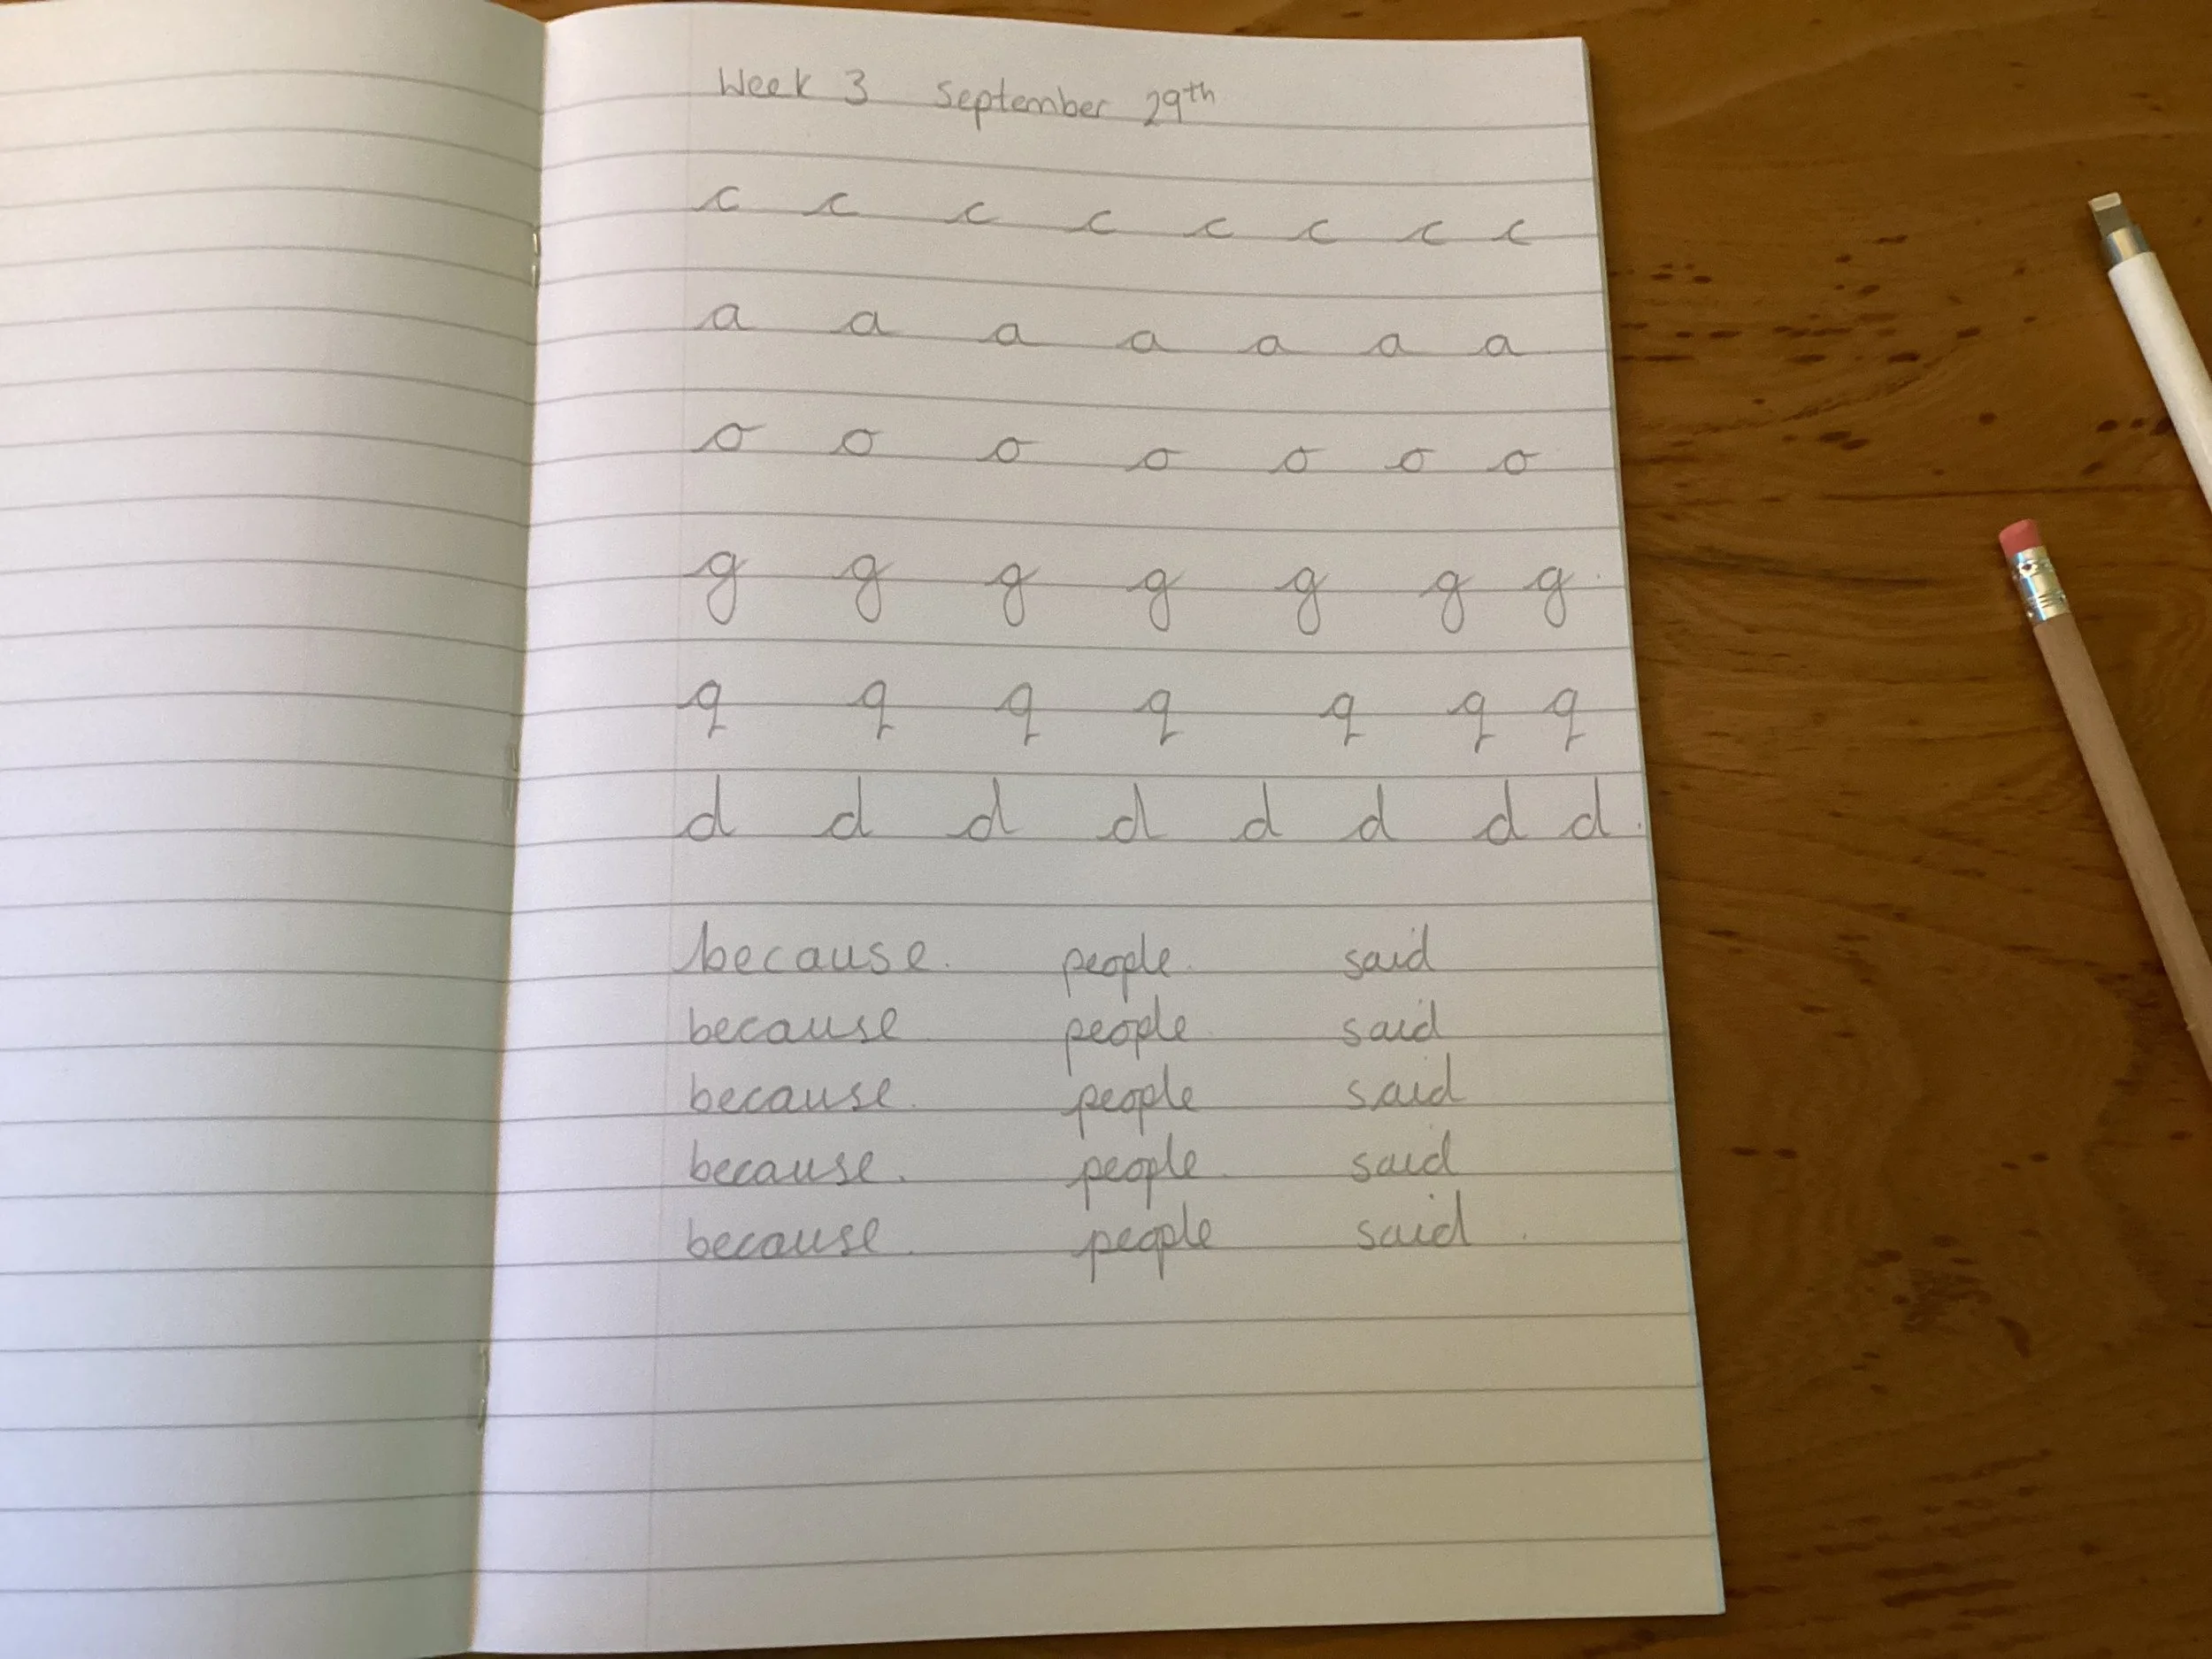 Week 3 September 29th
c c c c c c c c
a a a a a a a
o o o o o o o
g g g g g g g.
q q q q q q q
d d d d d d d d.
because. people. said
because people. said
because. people said
because. people. said
because. people said.